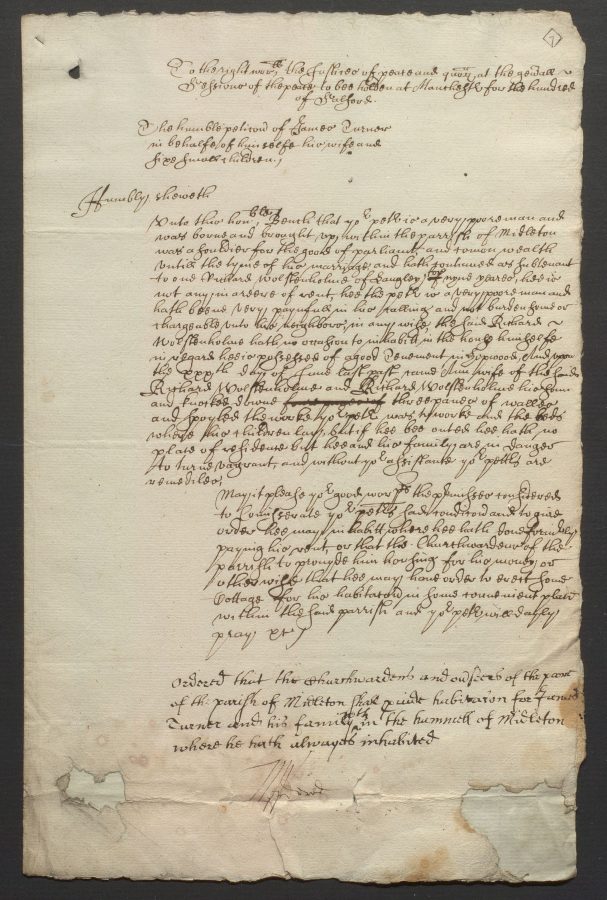 7
To the right worll the Justices of peace and quorū at the genall
Sessions of the peace to bee holden at Manchestr for the hundred
of Salford.
The humble peticon of James Turner
in behalfe of himselfe his wife and
sixe small children./
Humbly sheweth
Unto this honble Bench that yor petr is a very poore man and
was borne and brought up within the parrish of Midleton
was a souldier for the good of parliamt and comon wealth
untill the tyme of his marriage and hath continued as Intenant
to one Richard Wolstenholme of Langley for nyne yeares, hee is
not any in areere of rent, hee the petr is a very poore man and
hath beene very painfull in his calling and not burdensome or
chargeable unto his neighbors in any wise, the said Richard
Wolstenholme hath no occasion to inhabitt in the house himselfe
in regard hee is possessed of a good Tenement in Hopwood, And upon
the xxxth day of June last past came Ann wife of the said
Richard Wolstenholme and Richard Wolstenholme his sonn
and knocked downe three panes of walles
and spoyled the worke yor petr was to worke and the beds
where his children lay, but if hee bee outed hee hath no
place of residence but hee and his family are in danger
to turne vagrant, and without yor assistance yor petrs are
remediles,
May it please yor good worps the premisses considered
to Comiserate yor petrs sad condicon and to give
order hee may inhabitt where hee hath done formerly
paying his rent, or that the Churchwardens of the
parrish to provyde him housing for his money or
otherwise that hee may have order to erect some
Cottage for his habitacon in some convenient place
within the said parrish and yor petr will dayly
pray etc
Ordered that the Churchwardens and ovrseers of the poore
of the parish of Midleton shall pvide habitacon for James
Turner and his family in the hamnell of Midleton
where he hath alwayes inhabited